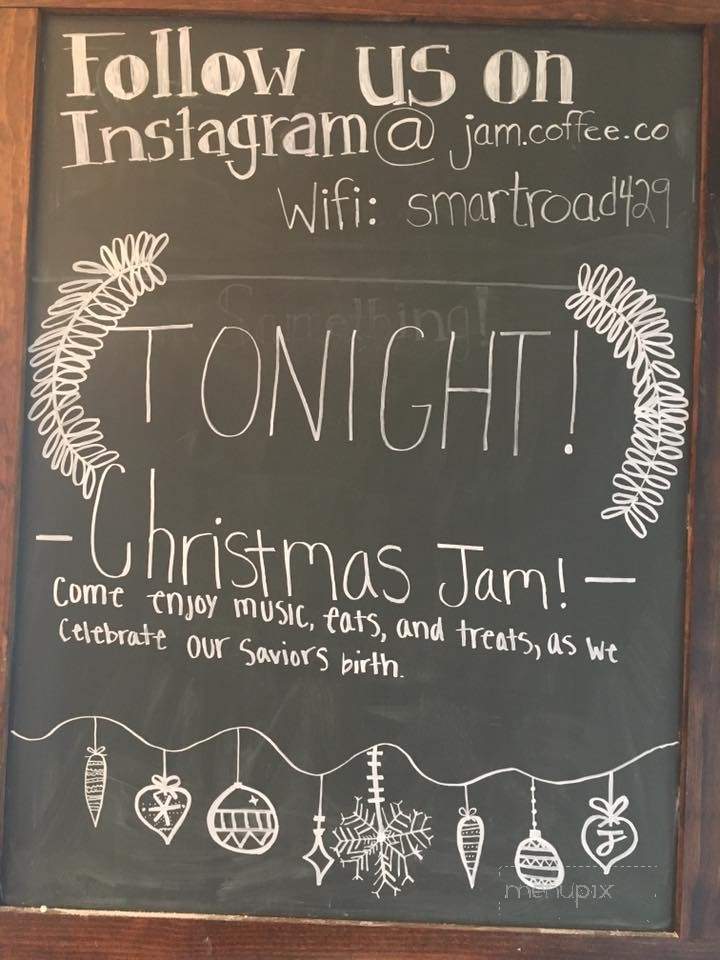 Follow us on
Instagram@ jam.coffee.co
Wifi: smartroad429
Something!
TONIGHT!
-Christmas Jam!-
Come enjoy music, eats, and treats, as we
Celebrate our Saviors birth.
J
menupix